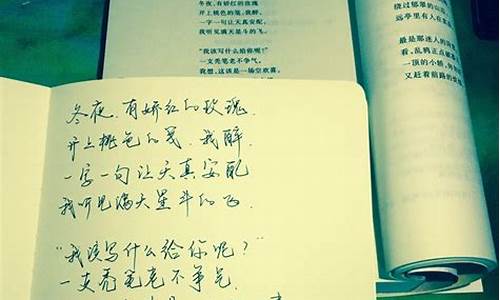 冬夜,有娇红的玫瑰
开上桃色的笺,我醉,
一字一句让天真安配,
我听见满天星斗的飞。
“我该写什么给你呢?”
一支秃笔老不争气,
我想,这该是一场空欢喜。
绕过郁翠的山
远亭里有人在
最是那迷人的
看,乱鸦正点破
一顶的小轿,
又赶着前路的
冬夜,有娇红的玫瑰,
开上桃色的笺,我醉,
一字一句让天真安配
我听见满天星斗的飞。
“我该写什么给你呢?”
一支秃笔老不争气,